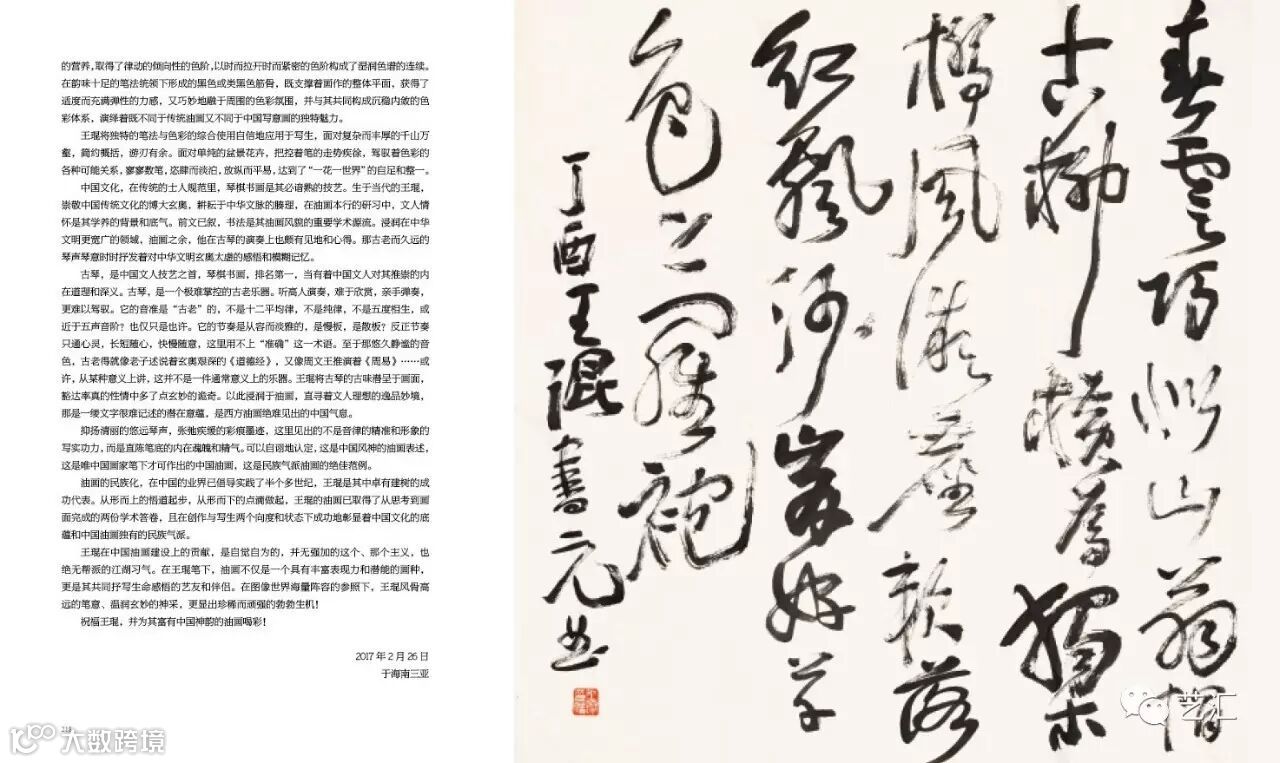 的营养,取得了律动的倾向性的色阶,以时而拉开时而紧密的色阶构成了湿润色谱的连续。
在韵味十足的笔法统领下形成的黑色或类黑色筋骨，既支撑着画作的整体平面，获得了
适度而充满弹性的力感，又巧妙地融于周围的色彩氛围，并与其共同构成沉稳内敛的色
彩体系，演绎着既不同于传统油画又不同于中国写意画的独特魅力。
王琨将独特的笔法与色彩的综合使用自信地应用于写生，面对复杂而丰厚的千山万
壑，简约概括，游刃有余。面对单纯的盆景花卉，把控着笔的走势疾徐，驾驭着色彩的
各种可能关系，寥寥数笔，恣肆而淡泊，放纵而平易，达到了“一花一世界”的自足和整一。
中国文化，在传统的士人规范里，琴棋书画是其必谙熟的技艺。生于当代的王琨，
崇敬中国传统文化的博大玄奥，耕耘于中华文脉的腠理，在油画本行的研习中，文人情
怀是其学养的背景和底气。前文已叙，书法是其油画风貌的重要学术源流。浸润在中华
文明更宽广的领域，油画之余，他在古琴的演奏上也颇有见地和心得。那古老而久远的
琴声琴意时时抒发着对中华文明玄奥太虚的感悟和模糊记忆。
古琴，是中国文人技艺之首，琴棋书画，排名第一，当有着中国文人对其推崇的内
在道理和深义。古琴，是一个极难掌控的古老乐器。听高人演奏，难于欣赏，亲手弹奏，
更难以驾驭。它的音准是“古老”的，不是十二平均律，不是纯律，不是五度相生，或
近于五声音阶？也仅只是也许。它的节奏是从容而淡雅的，是慢板，是散板？反正节奏
只通心灵，长短随心，快慢随意，这里用不上“准确”这一术语。至于那悠久静谧的音
色，古老得就像老子述说着玄奥艰深的《道德经》，又像周文王推演着《周易》……或
许，从某种意义上讲，这并不是一件通常意义上的乐器。王琨将古琴的古味潜呈于画面，
豁达率真的性情中多了点玄妙的诡奇。以此浸润于油画，直寻着文人理想的逸品妙境，
那是一缕文字很难记述的潜在意蕴，是西方油画绝难见出的中国气息。
抑扬清丽的悠远琴声，张弛疾缓的彩痕墨迹，这里见出的不是音律的精准和形象的
写实功力，而是直陈笔底的内在魂魄和精气。可以自诩地认定，这是中国风神的油画表述，
这是唯中国画家笔下才可作出的中国油画，这是民族气派油画的绝佳范例。
油画的民族化，在中国的业界已倡导实践了半个多世纪，王琨是其中卓有建树的成
功代表。从形而上的悟道起步，从形而下的点滴做起，王琨的油画已取得了从思考到画
面完成的两份学术答卷，且在创作与写生两个向度和状态下成功地彰显着中国文化的底
蕴和中国油画独有的民族气派。
王琨在中国油画建设上的贡献，是自觉自为的，并无强加的这个、那个主义，也
绝无帮派的江湖习气。在王琨笔下，油画不仅是一个具有丰富表现力和潜能的画种，
更是其共同抒写生命感悟的艺友和伴侣。在图像世界海量阵容的参照下，王琨风骨高
远的笔意、温润玄妙的神采，更显出珍稀而顽强的勃勃生机！
祝福王琨，并为其富有中国神韵的油画喝彩！
2017 年 2 月 26 日
于海南三亚
大数跨境
春云巧似山翁帽
古柳横为独木
桥风微尘软落
红飘沙岸好草
色上罗袍
丁酉王琨书元曲
艺汇